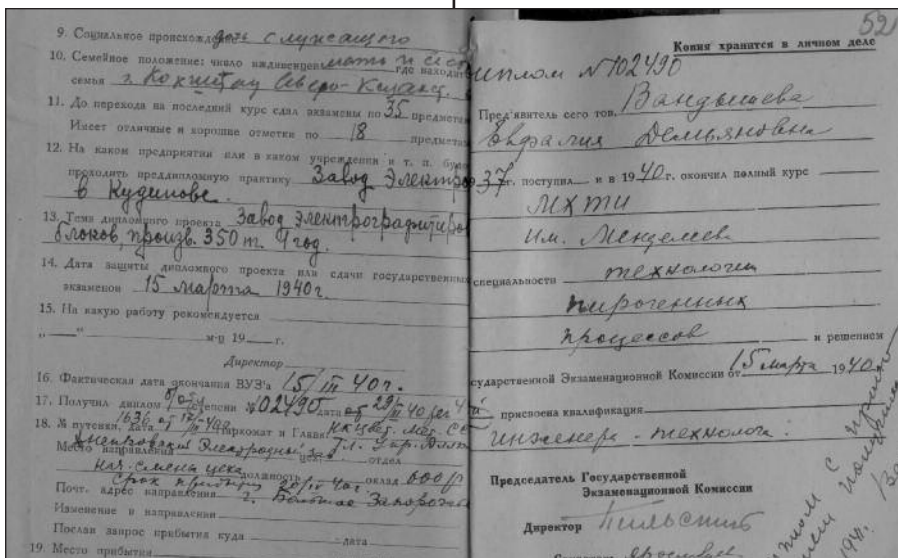 9. Социальное происхождение дочь служащего
10. Семейное положение: число иждивенцев мать и где находится
семья г. Кокчетау Северо-Казахс.
11. До перехода на последний курс сдал экзамены по 35 предметам
Имеет отличные и хорошие отметки по 18 предметам
12. На каком предприятии или в каком учреждении и т. п. будет
проходить преддипломную практику Завод Электро
в Кудинове.
13. Тема дипломного проекта Завод электрографитиров
блоков, произв. 350 т. год.
14. Дата защиты дипломного проекта или сдачи государственных
экзаменов 15 марта 1940 г.
15. На какую работу рекомендуется
„ “ м-ц 19 г.
Директор
16. Фактическая дата окончания ВУЗ'а 15/III 40 г.
17. Получил диплом степени № 02490 дата
18. № путевки, дата 1636 Наркомат и Главк НКЦвет. Мет. СС
Место направления Днепровский Электродный зав. цех отдел
нач. смены цеха должность оклад 600 р
срок прибытия 20/IV 40 г.
Почт. адрес направления г. Большое Запорожье
Изменение в направлении
Послан запрос прибытия куда дата
19. Место прибытия
52
Копия хранится в личном деле
Диплом № 102490
Пред'явитель сего тов. Вандышева
Евфалия Демьяновна
37 г. поступил и в 1940 г. окончил полный курс
МХТИ
им. Менделеева
специальности технологии
пирогенных
процессов и решением
Государственной Экзаменационной Комиссии от 15 марта 1940
присвоена квалификация
инженера-технолога.
Председатель Государственной
Экзаменационной Комиссии
Директор Пильский